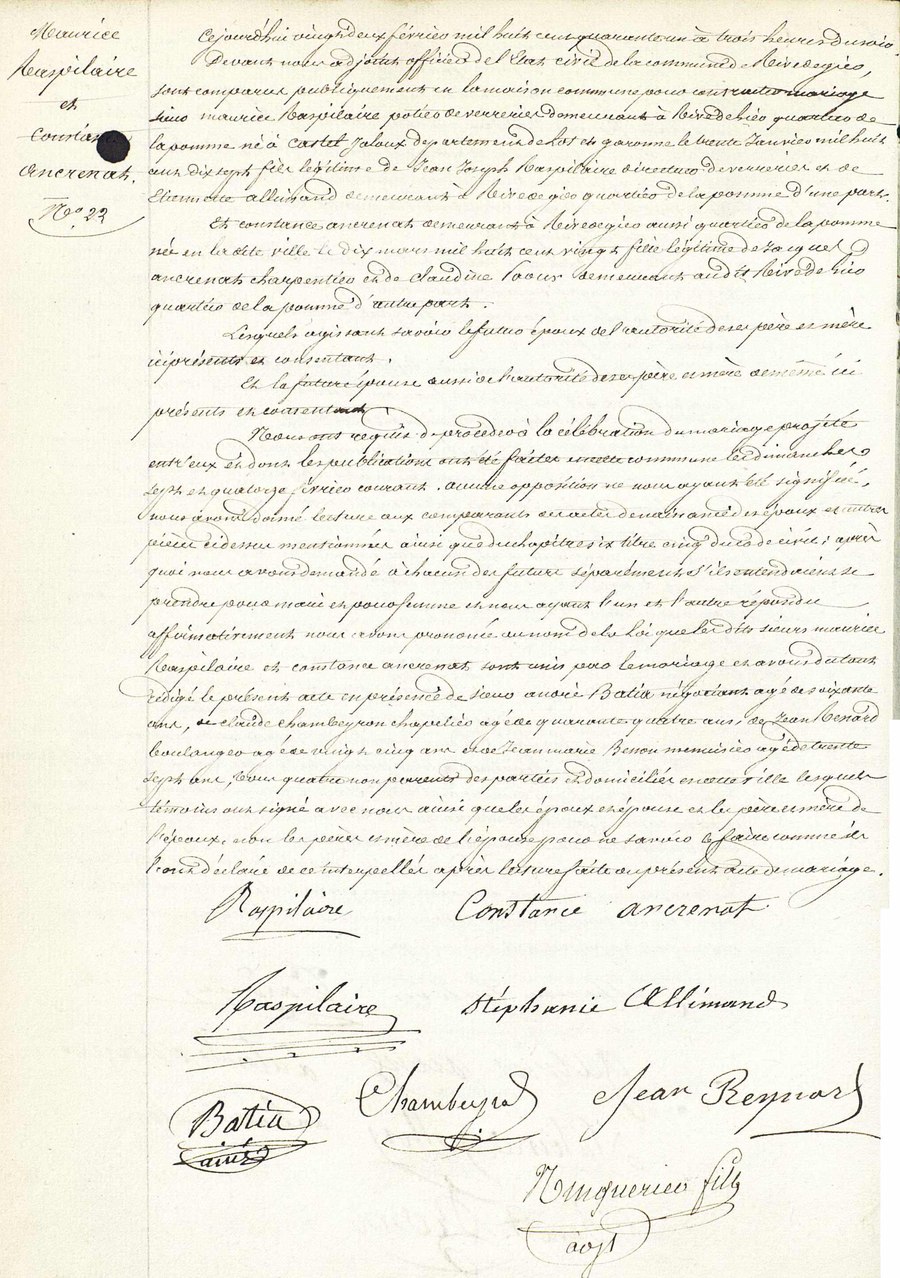 Maurice
Raspilaire
et
Constance
ancrenat.
N.o 22
Cejourdhui vingt deux février mil huit cent quarante un à trois heures du soir
Devant nous adjoint officier de l'Etat civil de la commune de Rivedegier,
sont comparus publiquement en la maison commune pour contracter mariage
sieur maurice Raspilaire potier de verrerie demeurant à Rivedegier quartier de
la pomme né à Castel Jaloux departement de Lot et garonne le trente Janvier mil huit
cent dix sept fils légitime de Jean Joseph Raspilaire directeur de verreries et de
Etiennette allimand demeurant à Rivedegier quartier de la pomme d'une part.
Et constance ancrenat demeurant à Rivedegier aussi quartier de la pomme
née en la dite ville le dix mars mil huit cent vingt fille légitime de Jacques
ancrenat charpentier et de Claudine demeurant audit Rivedegier
quartier de la pomme d'autre part.
Lesquels agissant savoir le futur époux de l'autorité de ses père et mère
ici présents et consentant.
Et la future épouse aussi de l'autorité de ses père et mère de même ici
présents et consentant
Nous ont requis de procéder à la célébration du mariage projété
entr'eux et dont les publications ont été faites en cette commune les dimanches
sept et quatorze février courant. aucune opposition ne nous ayant été signifiée,
nous avons donné lecture aux comparants des actes de naissance des époux et autres
pièces cidessus mentionnées ainsi que du chapitre six titre cinq du code civil; après
quoi nous avons demandé à chacun des futurs séparément s'ils entendaient se
prendre pour mari et pour femme et nous ayant l'un et l'autre répondu
affirmativement nous avons prononcé au nom de la loi que les dits sieurs maurice
Raspilaire et constance ancrenat sont unis par le mariage et avons du tout
rédigé le présent acte en présence de sieur andré Batia négociant agé de soixante
ans, de claude Chambeyron chapelier agé de quarante quatre ans, de Jean Renard
boulanger agé de vingt cinq ans et de Jean marie Benon menuisier agé de trente
sept ans, tous quatre non parents des parties et domiciliés en cette ville lesquels
témoins ont signé avec nous ainsi que les époux et épouse et les père et mère de
l'époux, non les père et mère de l'épouse pour ne savoir le faire comme ils
l'ont déclaré de ce interpellés après lecture faite du présent acte de mariage.
Raspilaire Constance ancrenat
Raspilaire Stéphanie Allimand
Batia Chambeyron Jean Reynard
ainé
fils
adjt